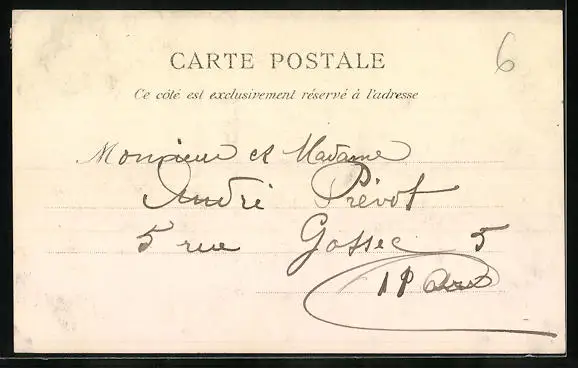 6
CARTE POSTALE
Ce côté est exclusivement réservé à l'adresse
Monsieur et Madame
André Prévot
5 rue Gossec 5
Paris